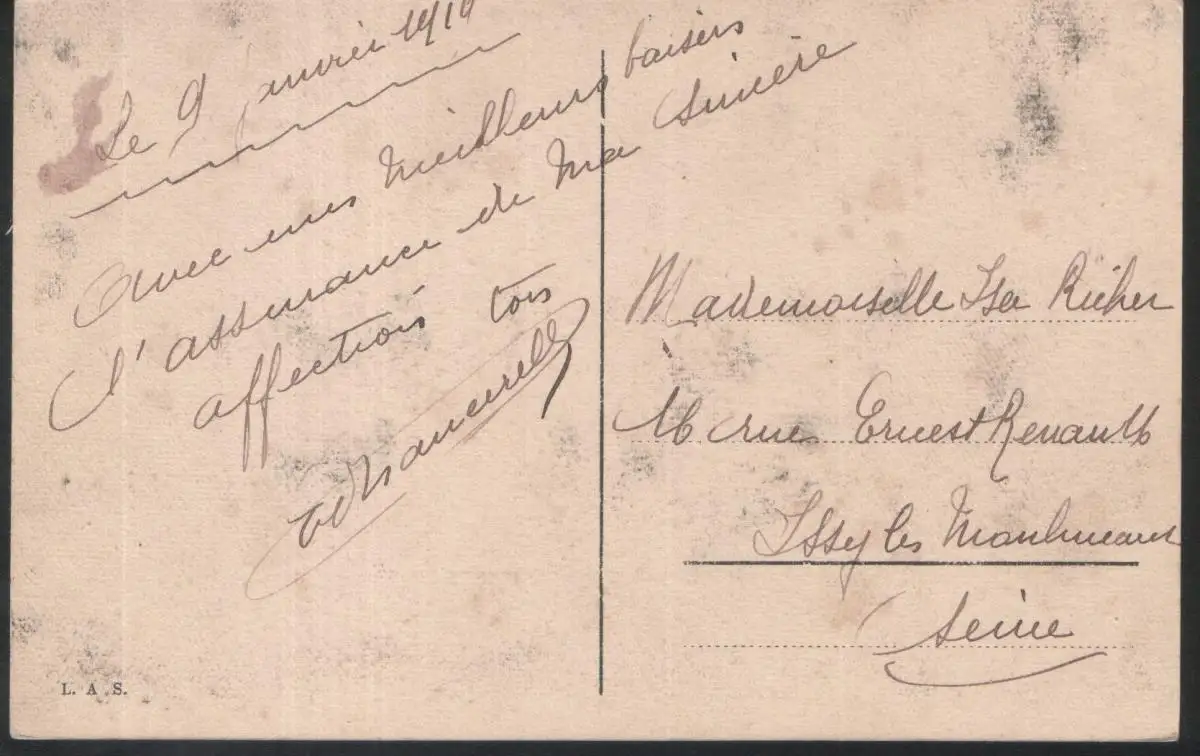 Le 9 janvier 1919
Avec mes meilleurs baisers
l'assurance de ma sincère
affection ton
L. A S.
Mademoiselle Isa Richer
rue Ernest Renault
Issy les Moulineaux
Seine